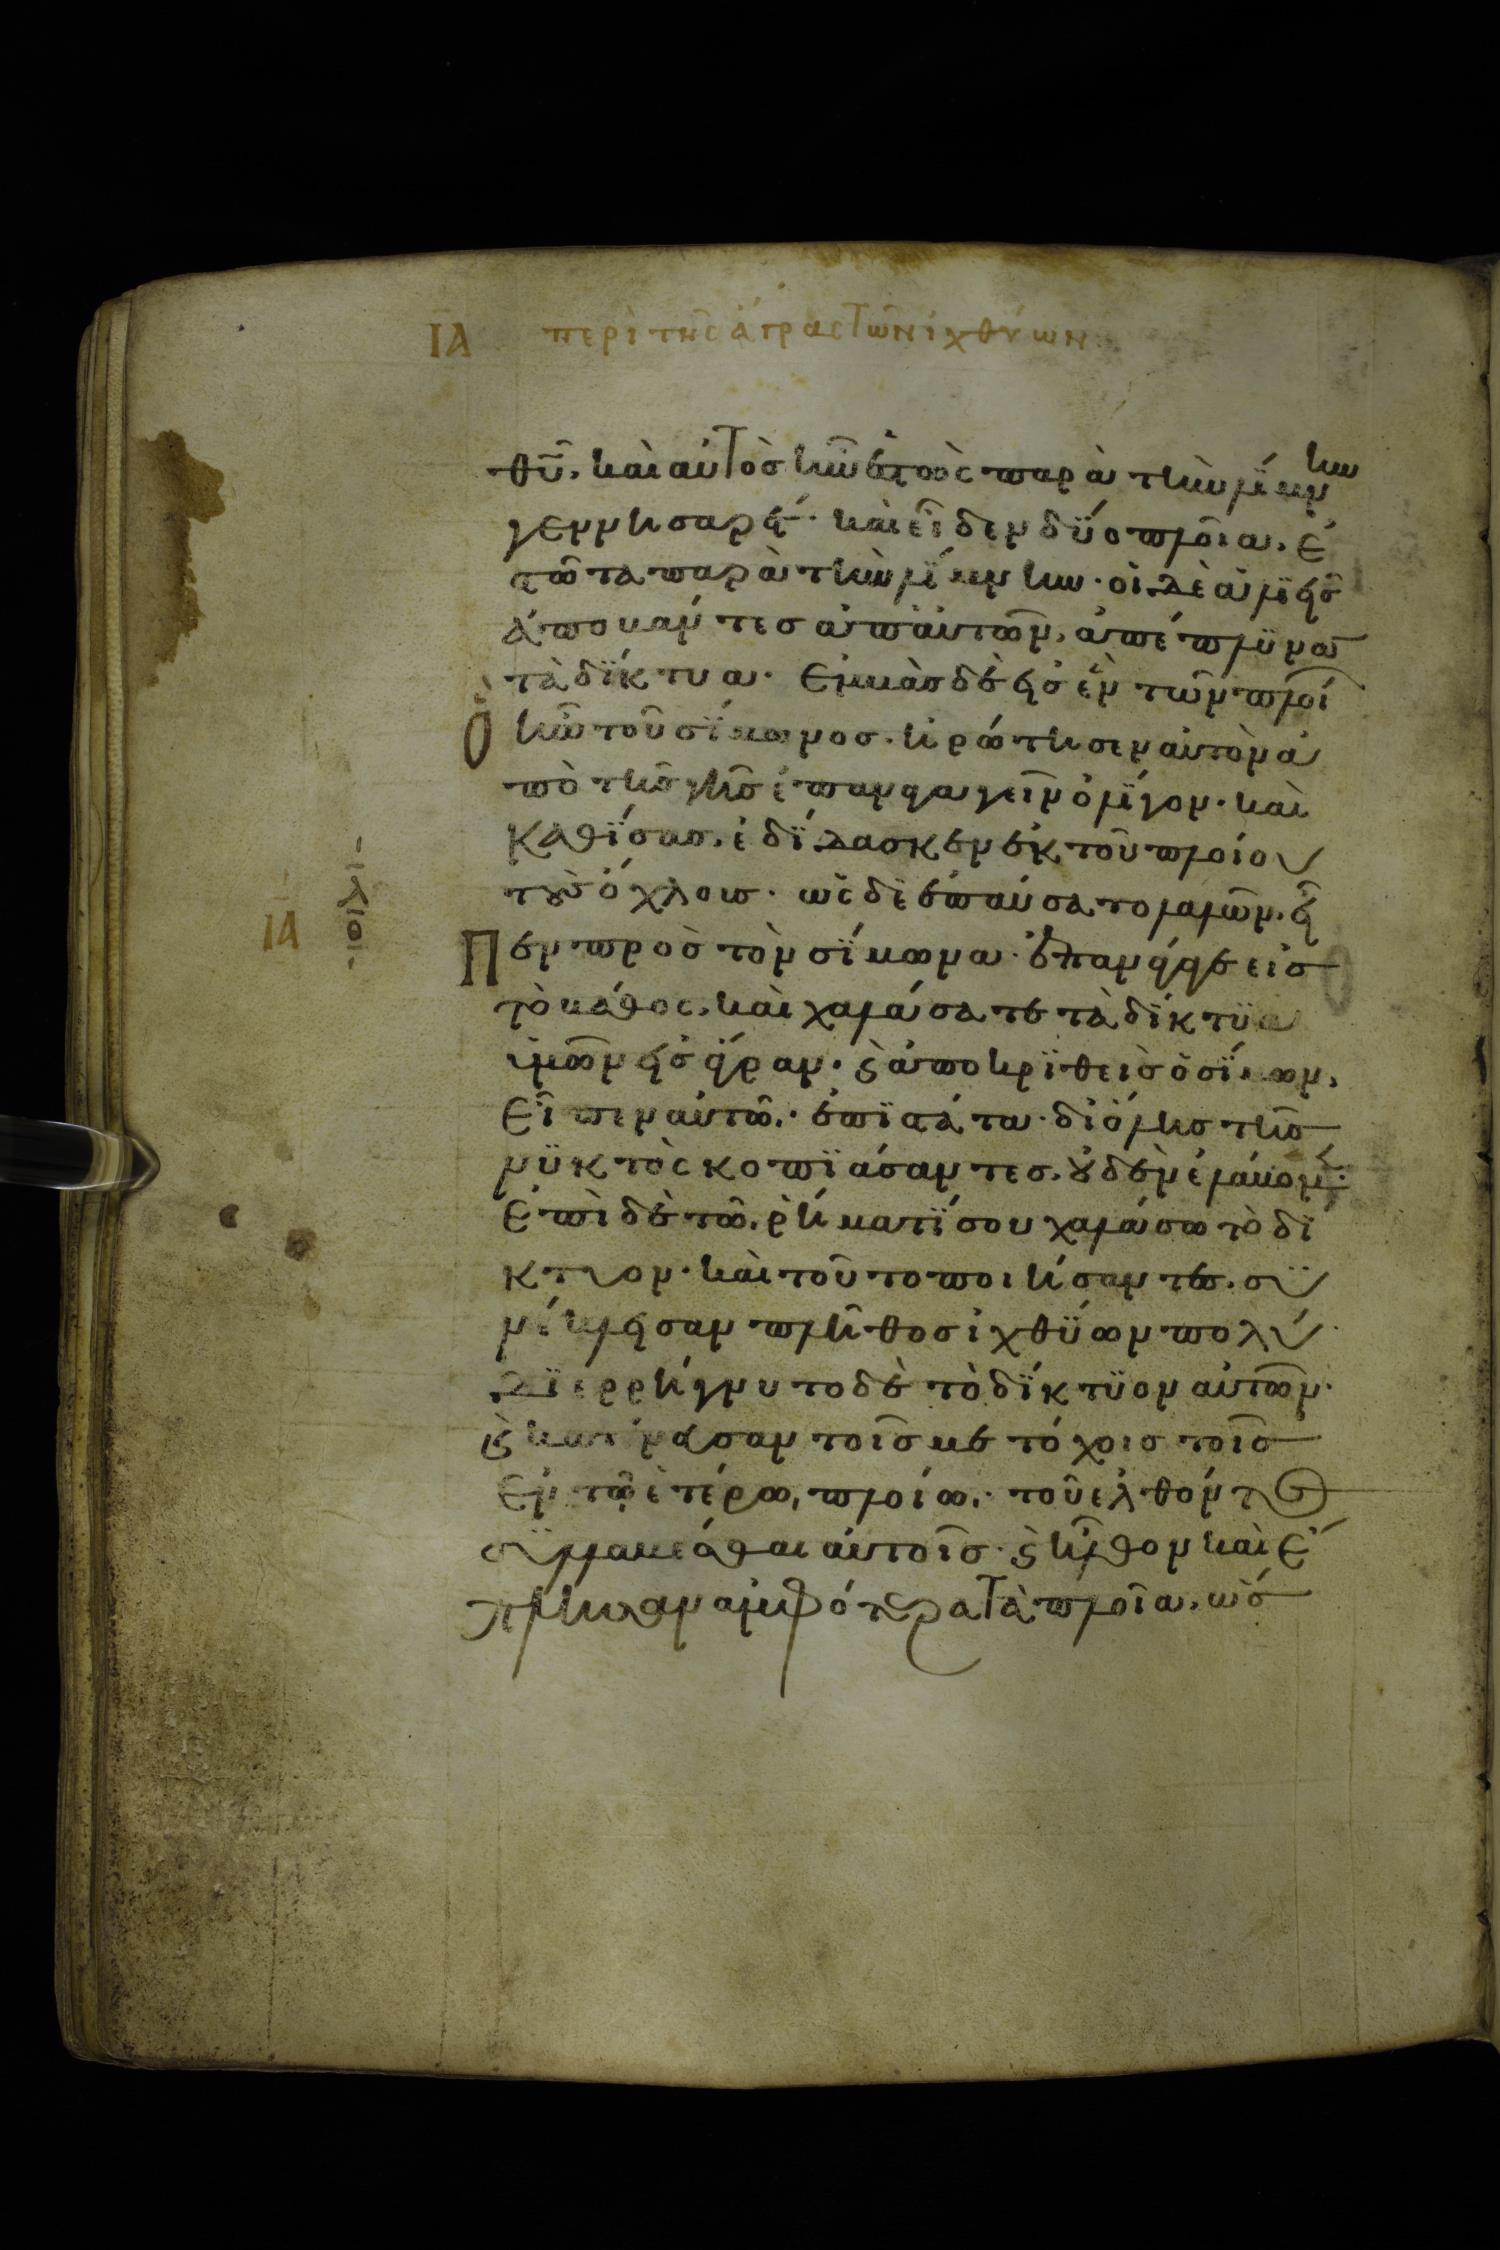 ΙΑ περὶ τῆς ἄγρας τῶν ἰχθύων
θῦ, καὶ αὐτὸσ ἦν ἑστὼς παρὰ τὴν λίμνην
γεννησαρέτ· καὶ εἶδεν δύο πλοῖα, ἑ
στῶτα παρὰ τὴν λίμνην· οἱ δὲ ἁλιεῖσ
ἀποβάντεσ ἀπ' αὐτῶν, ἀπέπλυναν
τὰ δίκτυα· ἐμβὰσ δὲ εἰσ ἓν τῶν πλοί
ὃ ἦν τοῦ σίμωνοσ· ἠρώτησεν αὐτὸν ἀ
πὸ τῆσ γῆσ ἐπαναγαγεῖν ὀλίγον· καὶ
καθίσασ, ἐδίδασκεν ἐκ τοῦ πλοίου
τοὺσ ὄχλουσ· ὡς δὲ ἐπαύσατο λαλῶν, εἶ
Πεν πρὸσ τὸν σίμωνα· ἐπανάγαγε εἰσ
τὸ βάθος, καὶ χαλάσατε τὰ δίκτυα
ὑμῶν εἰσ ἄγραν· ϗ ἀποκριθεὶσ ὁ σίμων,
εἶπεν αὐτῶ· ἐπιστάτα· δι' ὅλησ τῆσ
νυκτὸς κοπιάσαντεσ, οὐδὲν ἐλάβομεν·
ἐπὶ δὲ τῶ ῥήματί σου χαλάσω τὸ δί
κτυον· καὶ τοῦτο ποιήσαντεσ, συ
νέκλεισαν πλῆθοσ ἰχθύων πολύ·
διερρήγνυτο δὲ τὸ δίκτυον αὐτῶν·
ϗ κατένευσαν τοῖσ μετόχοισ τοῖσ
ἐν τῶ ἑτέρω πλοίω· τοῦ ἐλθόντασ
συλλαβέσθαι αὐτοῖσ· ϗ ἦλθον καὶ ἔ
πλησαν ἀμφότερα τὰ πλοῖα, ὡσ
ΙΑ